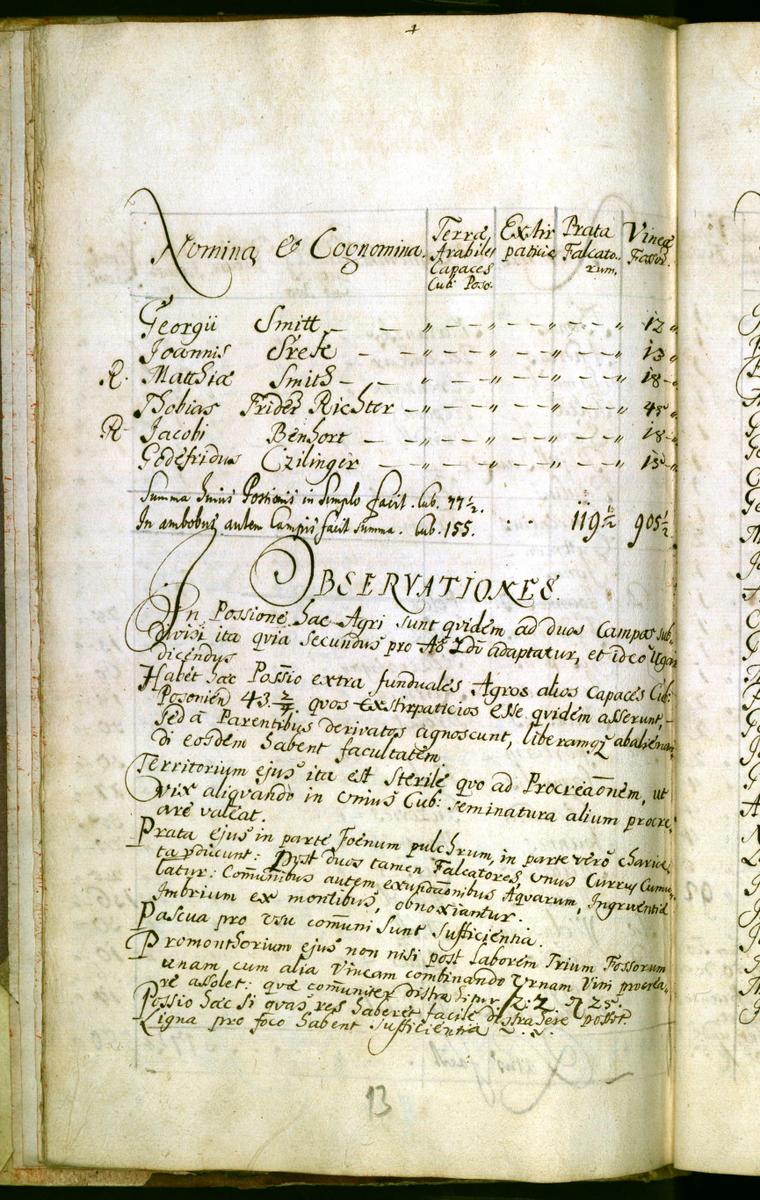 Nomina & Cognomina. Terræ Arabiles Capaces Cub: Poso. Extirpatitiæ Prata Falcatorum. Vineæ Fossor.
Georgii Smitt – – „ – – „ – – – „ – – – „ 12 „
Joannis Srek – – „ – – „ – – – „ – – – „ 13 „
R. Matthiæ Smith – – „ – – „ – – – „ – – – „ 18 „
Thobias Frider Richter – „ – – „ – – – „ – – – „ 45 „
R. Jacobi Benhort – – „ – – „ – – – „ – – – „ 18 „
Godefridus Czilinger – – „ – – „ – – – „ – – – „ 15 „
Summa huius Possionis in Simplo facit. Cub. 77½.
In ambobus autem Campis facit Summa. Cub. 155. . . 119½ 905½
OBSERVATIONES.
In Possione hac Agri sunt quidem ad duos Campos sub-
divisi ita quia secundus pro Ao 2dū adaptatur, et ideo Ugar
dicendus
Habet hæc Possio extra funduales Agros alios capaces Cub:
Posonien 43. 2/4. quos Extirpaticios esse quidem asserunt, –
sed à Parentibus derivatos agnoscunt, liberamq abalienan
di eosdem habent facultatem.
Territorium ejus ita est sterile quo ad Procreaōnem, ut
vix aliquando in unius Cub: seminatura alium procre,
are valeat.
Prata ejus in parte Foenum pulchrum, in parte vero
producunt: Post duos tamen Falcatores, unus Currus Cumu,
latur: Comūnibus autem exundaōnibus Aquarum, Ingruentiâ
Imbrium ex montibus, obnoxiantur.
Pascua pro usu comūni sunt sufficientia.
Promonthorium ejus non nisi post laborem Trium Fossorum
unam cum alia Vineam combinando Urnam Vini procrea,
re assolet: quæ comūniter distrahitur f 2: 25.
Possio hæc si quas res haberet facile distrahere posset.
Ligna pro foco habent sufficientia
13